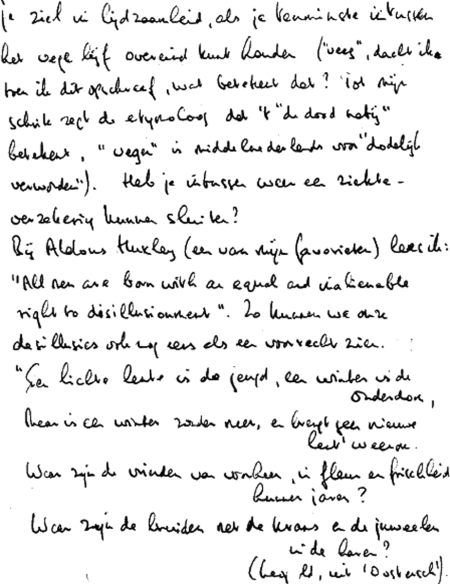 je ziel in lijdzaamheid, als je tenminste intussen
het vege lijf overeind kunt houden ("veeg", dacht ik
toen ik dit opschreef, wat betekent dat? Tot mijn
schrik zegt de etymoloog dat 't "de dood nabij"
betekent, "vegen" is middelnederlands voor "dodelijk
verwonden"). Heb je intussen weer een ziekte-
verzekering kunnen sluiten?
Bij Aldous Huxley (een van mijn favorieten) lees ik:
"All men are born with an equal and inalienable
right to disillusionment". Zo kunnen we onze
desillusies ook nog eens als een voorrecht zien.
"Een lichte lente is de jeugd, een winter is de
ouderdom,
Maar is een winter zonder meer, en brengt geen nieuwe
lent' weerom.
Waar zijn de vrinden van voorheen, in fleur en frischheid
hunner jaren?
Waar zijn de kruiden met de krans en de juweelen
in de haren?
( uit 'Oostersch').